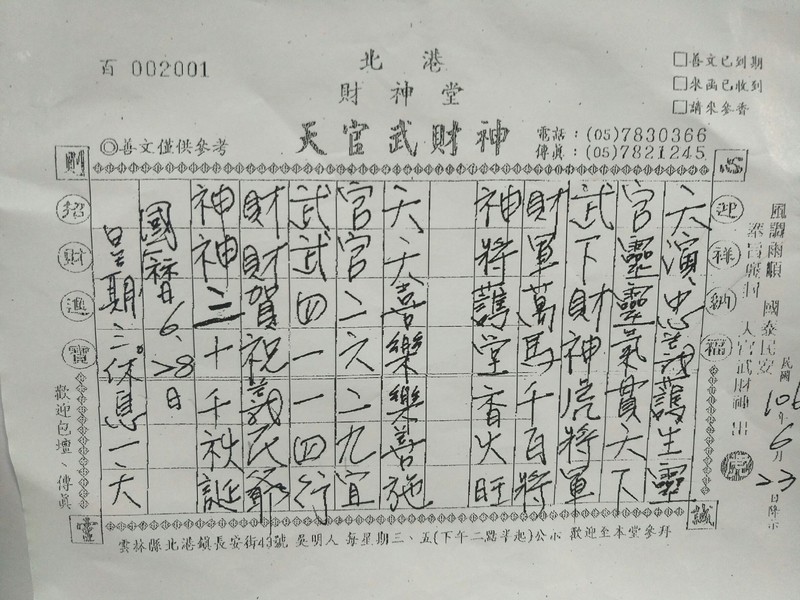 百 002001
北港
財神堂
天官武財神
◎善文僅供參考
電話：(05)7830366
傳真：(05)7821245
□善文已到期
□來函已收到
□請來參香
心
迎祥納福
誠
則
招財進寶
靈
風調雨順 國泰民安
天官武財神
民國106年6月23日降示
天演忠誠護生靈
官靈靈氣貫天下
武下財神虎將軍
財軍萬馬千百將
神將護堂香火旺
天天喜樂樂善施
官官二六二九宜
武武四一一四行
財財賀祝武氏爺
神神二十千秋誕
國曆6.28日
星期三休息一天
歡迎包壇、傳真
雲林縣北港鎮長安街43號 吳明人 每星期三、五(下午二點半起)公示 歡迎至本堂參拜